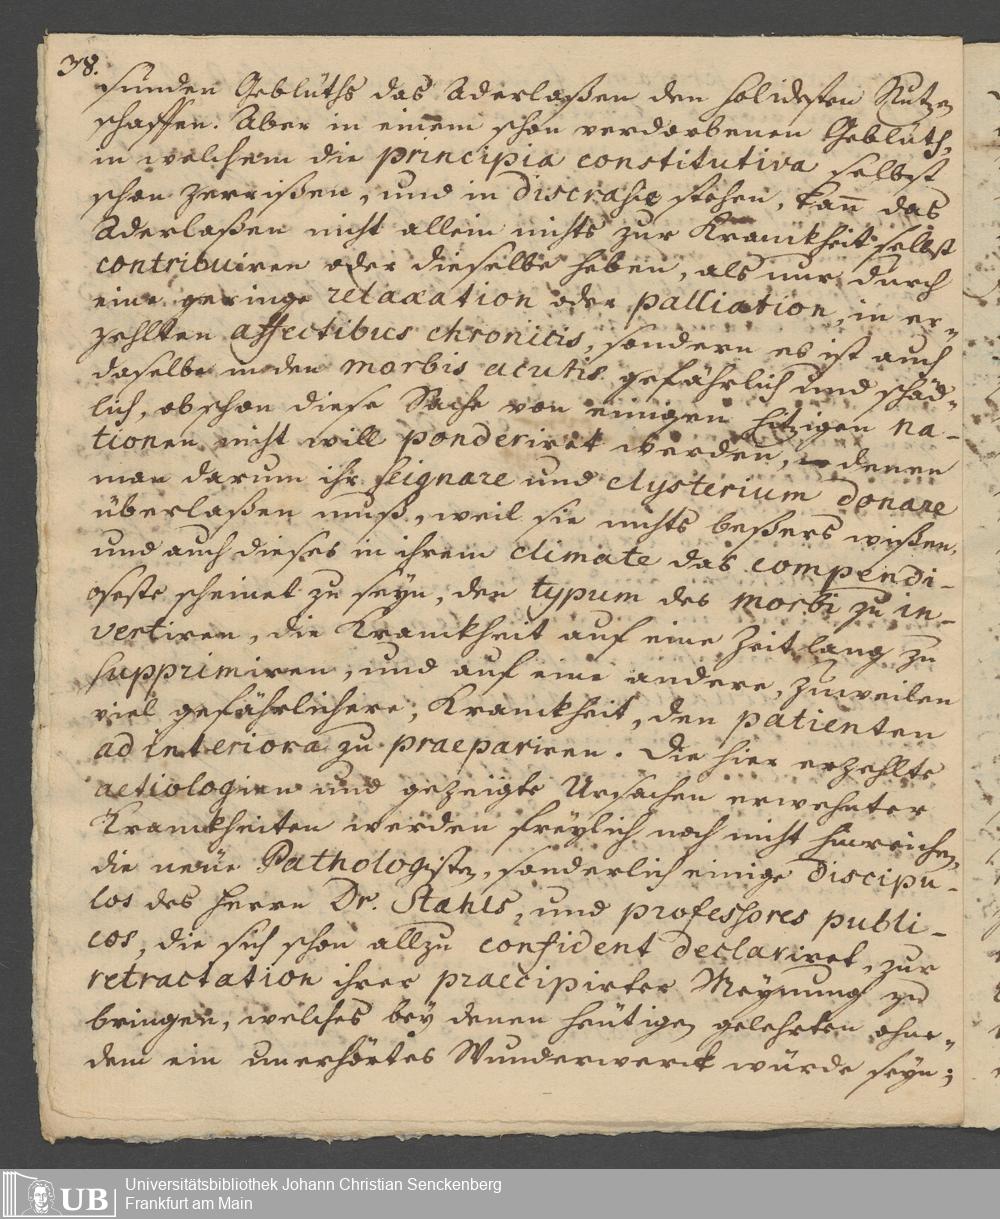 38.
sunden Geblüths das Aderlaßen den solidesten Nutzen
schaffen. Aber in einem schon verdorbenen Geblüth,
in welchem die principia constitutiva selbst
schon zerrißen, und in discrasie stehen, kann das
Aderlaßen nicht allein nichts zur Kranckheit selbst
contribuiren oder dieselbe heben, als nur durch
eine geringe relaxation oder palliation, in er-
zehlten affectibus chronicis, sondern es ist auch
daselbe in den morbis acutis gefährlich und schäd-
lich, obschon diese Sache von einigen hitzigen na-
tionen nicht will ponderiret werden, denen
man darum ihr seignare und clysterium donare
überlaßen muß, weil sie nichts beßers wißen,
und auch dieses in ihrem climate das compendi-
oseste scheinet zu seyn, den typum des morbi zu in-
vertiren, die Kranckheit auf eine Zeitlang zu
supprimiren, und auf eine andere, zuweilen
viel gefährlichere, Kranckheit, den patienten
ad interiora zu praepariren. Die hier erzehlte
aetiologien und gezeigte Ursachen erwehnter
Kranckheiten werden freylich noch nicht hinreichen,
die neüe Pathologisten, sonderlich einige discipu-
los des Herrn Dr. Stahls, und professores publi-
cos, die sich schon allzu confident declariret, zur
retractation ihrer praecipirter Meynung zu
bringen, welches bey denen heütigen gelehrten ohne-
dem ein unerhörtes Wunderwerck würde seyn;
UB
Universitätsbibliothek Johann Christian Senckenberg
Frankfurt am Main